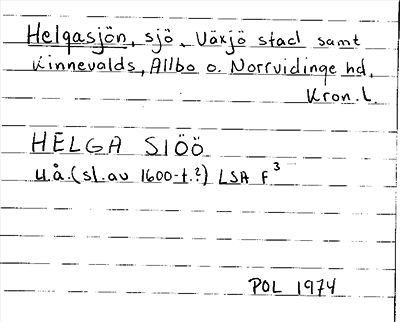 Helgasjön, sjö, Växjö stad samt
Kinnevalds, Allbo o. Norrvidinge hd,
Kron. l.
HELGA SIÖÖ
u.å. (sl. av 1600-t.?) LSA F³
POL 1974